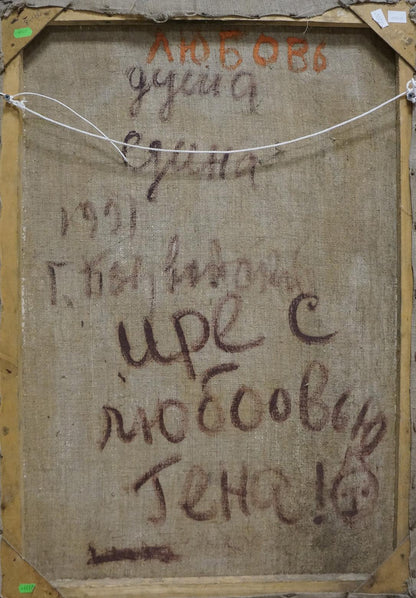 ЛЮБОВЬ
душа
едина
1991
Г.
ире с
любоовью
Гена!